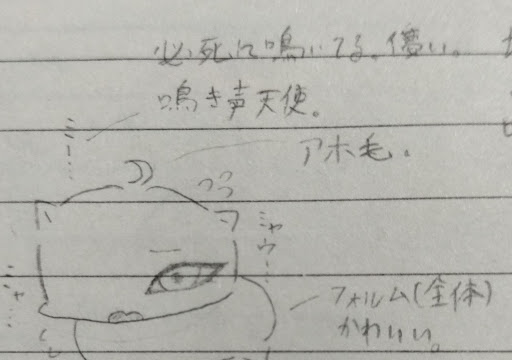 必死に鳴いてる。儚い。
鳴き声天使。
ミー…
アホ毛。
ミャウ…
ミャ…
フォルム(全体)
かわいい。